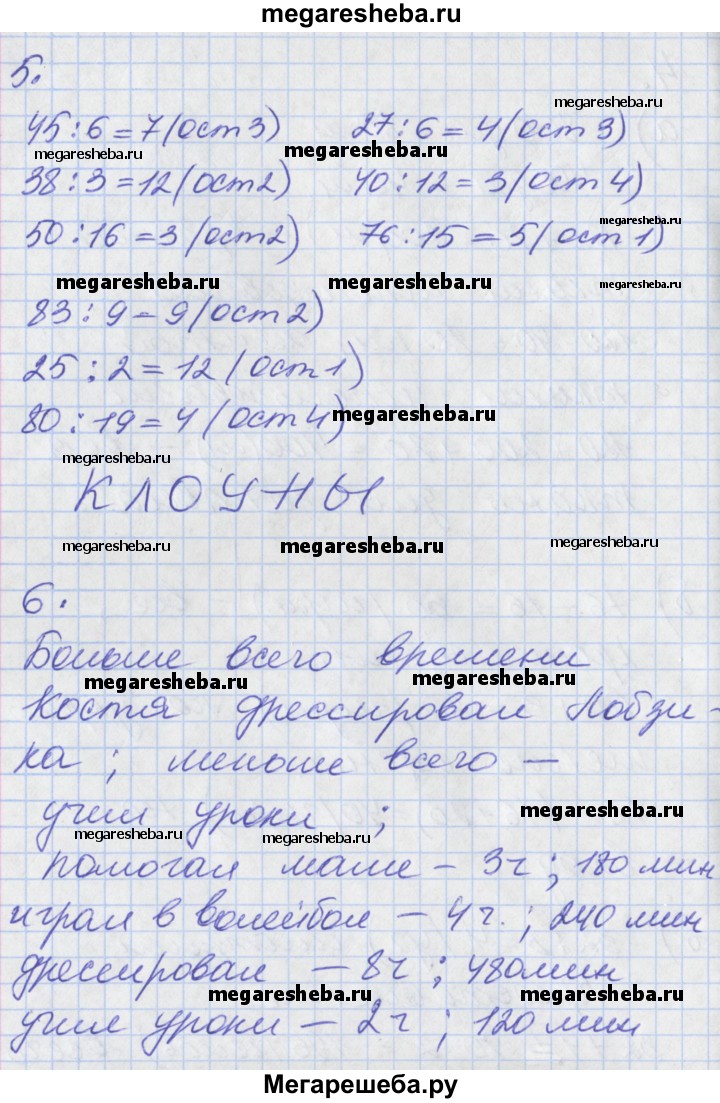 megaresheba.ru
5.
megaresheba.ru
45:6=7(ост 3) 27:6=4(ост 3)
megaresheba.ru megaresheba.ru
38:3=12(ост2) 40:12=3(ост 4)
megaresheba.ru
50:16=3(ост2) 76:15=5(ост 1)
megaresheba.ru megaresheba.ru
83:9=9(ост 2)
25:2=12(ост 1)
80:19=4(ост 4)
megaresheba.ru
megaresheba.ru
КЛОУНЫ
megaresheba.ru megaresheba.ru megaresheba.ru
6.
Больше всего времени
megaresheba.ru megaresheba.ru
Костя дрессировал Лобзи-
ка; меньше всего —
учил уроки;
megaresheba.ru
megaresheba.ru megaresheba.ru
помогал маме – 3ч; 180 мин
играл в волейбол – 4 ч.; 240 мин
дрессировал – 8ч; 480мин
megaresheba.ru megaresheba.ru
учил уроки – 2ч; 120 мин
Мегарешеба.ру